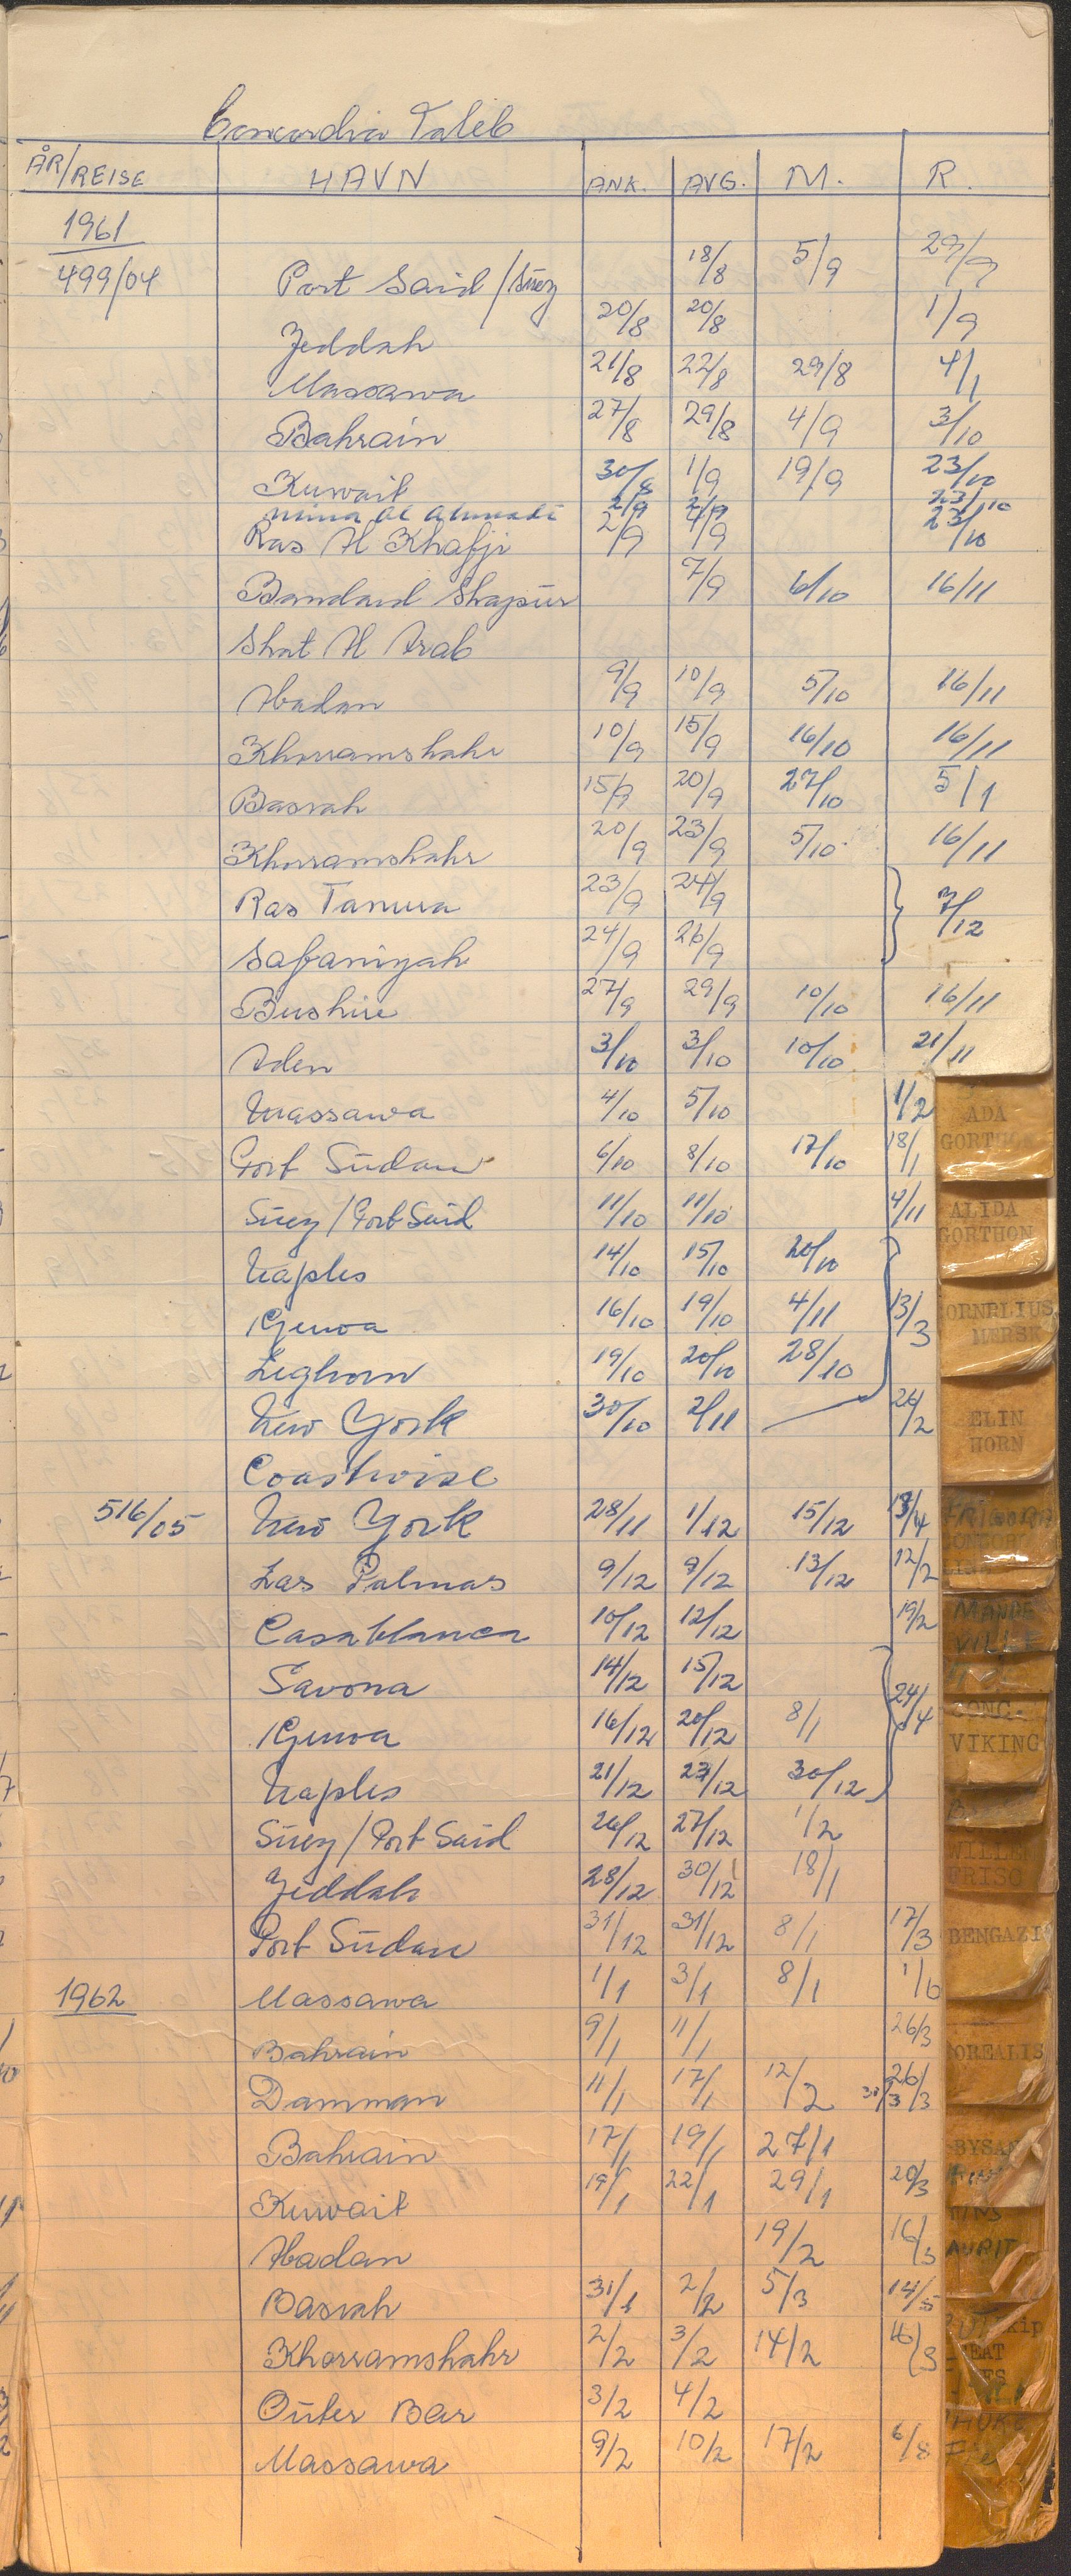 Concordia Taleb
ÅR/REISE HAVN ANK. AVG. M. R.
1961
499/04 Port Said/Suez 18/8 5/9 29/9
Jeddah 20/8 20/8 1/9
Massawa 21/8 22/8 29/8 4/1
Bahrain 27/8 29/8 4/9 3/10
Kuwait 30/8 1/9 19/9 23/10
Mina Al Ahmadi 2/9 2/9 23/10
Ras Al Khafji 2/9 4/9 23/10
Bandard Shapur 7/9 6/10 16/11
Shat Al Arab
Abadan 9/9 10/9 5/10 16/11
Khorramshahr 10/9 15/9 16/10 16/11
Basrah 15/9 20/9 27/10 5/1
Khorramshahr 20/9 23/9 5/10 16/11
Ras Tanura 23/9 24/9
7/12
Safaniyah 24/9 26/9
Bushire 27/9 29/9 10/10 16/11
Aden 3/10 3/10 10/10 21/11
Massawa 4/10 5/10 1/2
Port Sudan 6/10 8/10 17/10 18/1
Suez/Port Said 11/10 11/10 4/11
Naples 14/10 15/10 20/10
Genoa 16/10 19/10 4/11 13/3
Leghorn 19/10 20/10 28/10
New York 30/10 2/11 26/2
Coastwise
516/05 New York 28/11 1/12 15/12 13/4
Las Palmas 9/12 9/12 13/12 12/2
Casablanca 10/12 12/12 19/2
Savona 14/12 15/12
Genoa 16/12 20/12 8/1 24/4
Naples 21/12 23/12 30/12
Suez/Port Said 26/12 27/12 1/2
Jeddah 28/12 30/12 18/1
Port Sudan 31/12 31/12 8/1 17/3
1962 Massawa 1/1 3/1 8/1 1/6
Bahrain 9/1 11/1 26/3
Damman 11/1 17/1 12/2 31/3 26/3
Bahrain 17/1 19/1 27/1
Kuwait 19/1 22/1 29/1 20/3
Abadan 19/2 16/5
Basrah 31/1 2/2 5/3 14/5
Khorramshahr 2/2 3/2 14/2 16/5
Outer Bar 3/2 4/2
Massawa 9/2 10/2 17/2 6/8
ADA
GORTHON
ALIDA
GORTHON
CORNELIUS
MERSK
ELIN
HORN
MANDE
VILLE
CONC.
VIKING
WILLEM
FRISO
BENGAZI
OREALIS